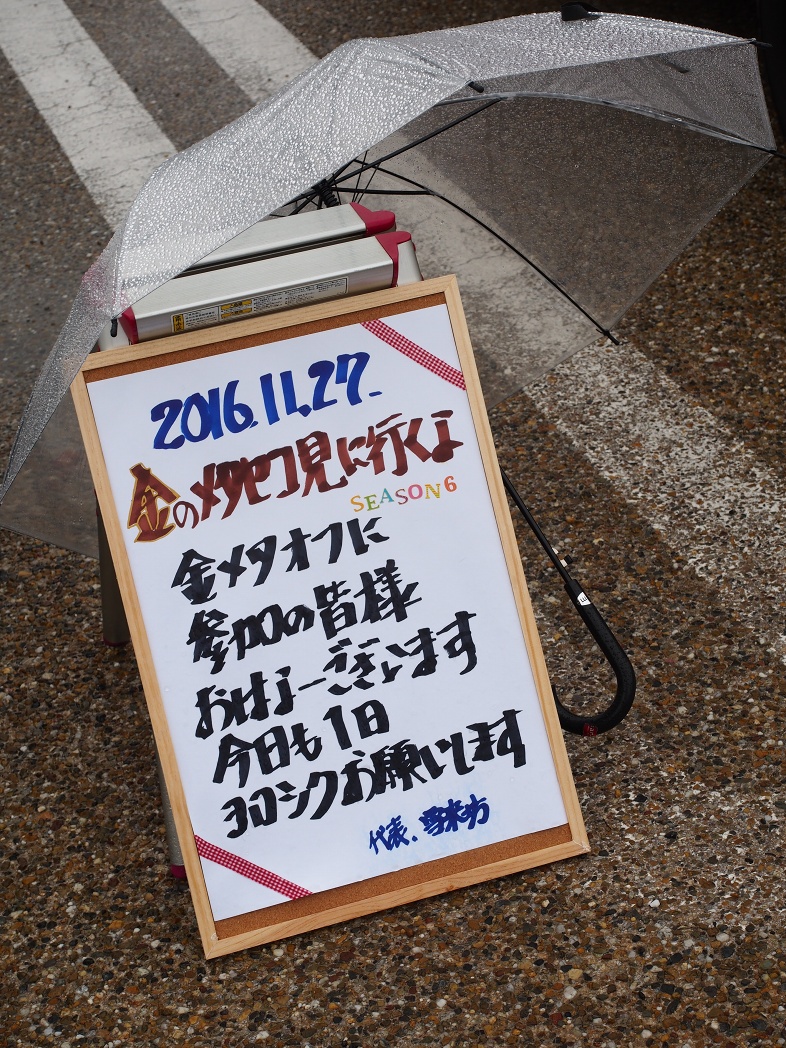 2016.11.27.
金のメタセコ見に行くよ
SEASON6
金メタオフに
参加の皆様
おはよーございます
今日も1日
ヨロシクお願いします
代表.